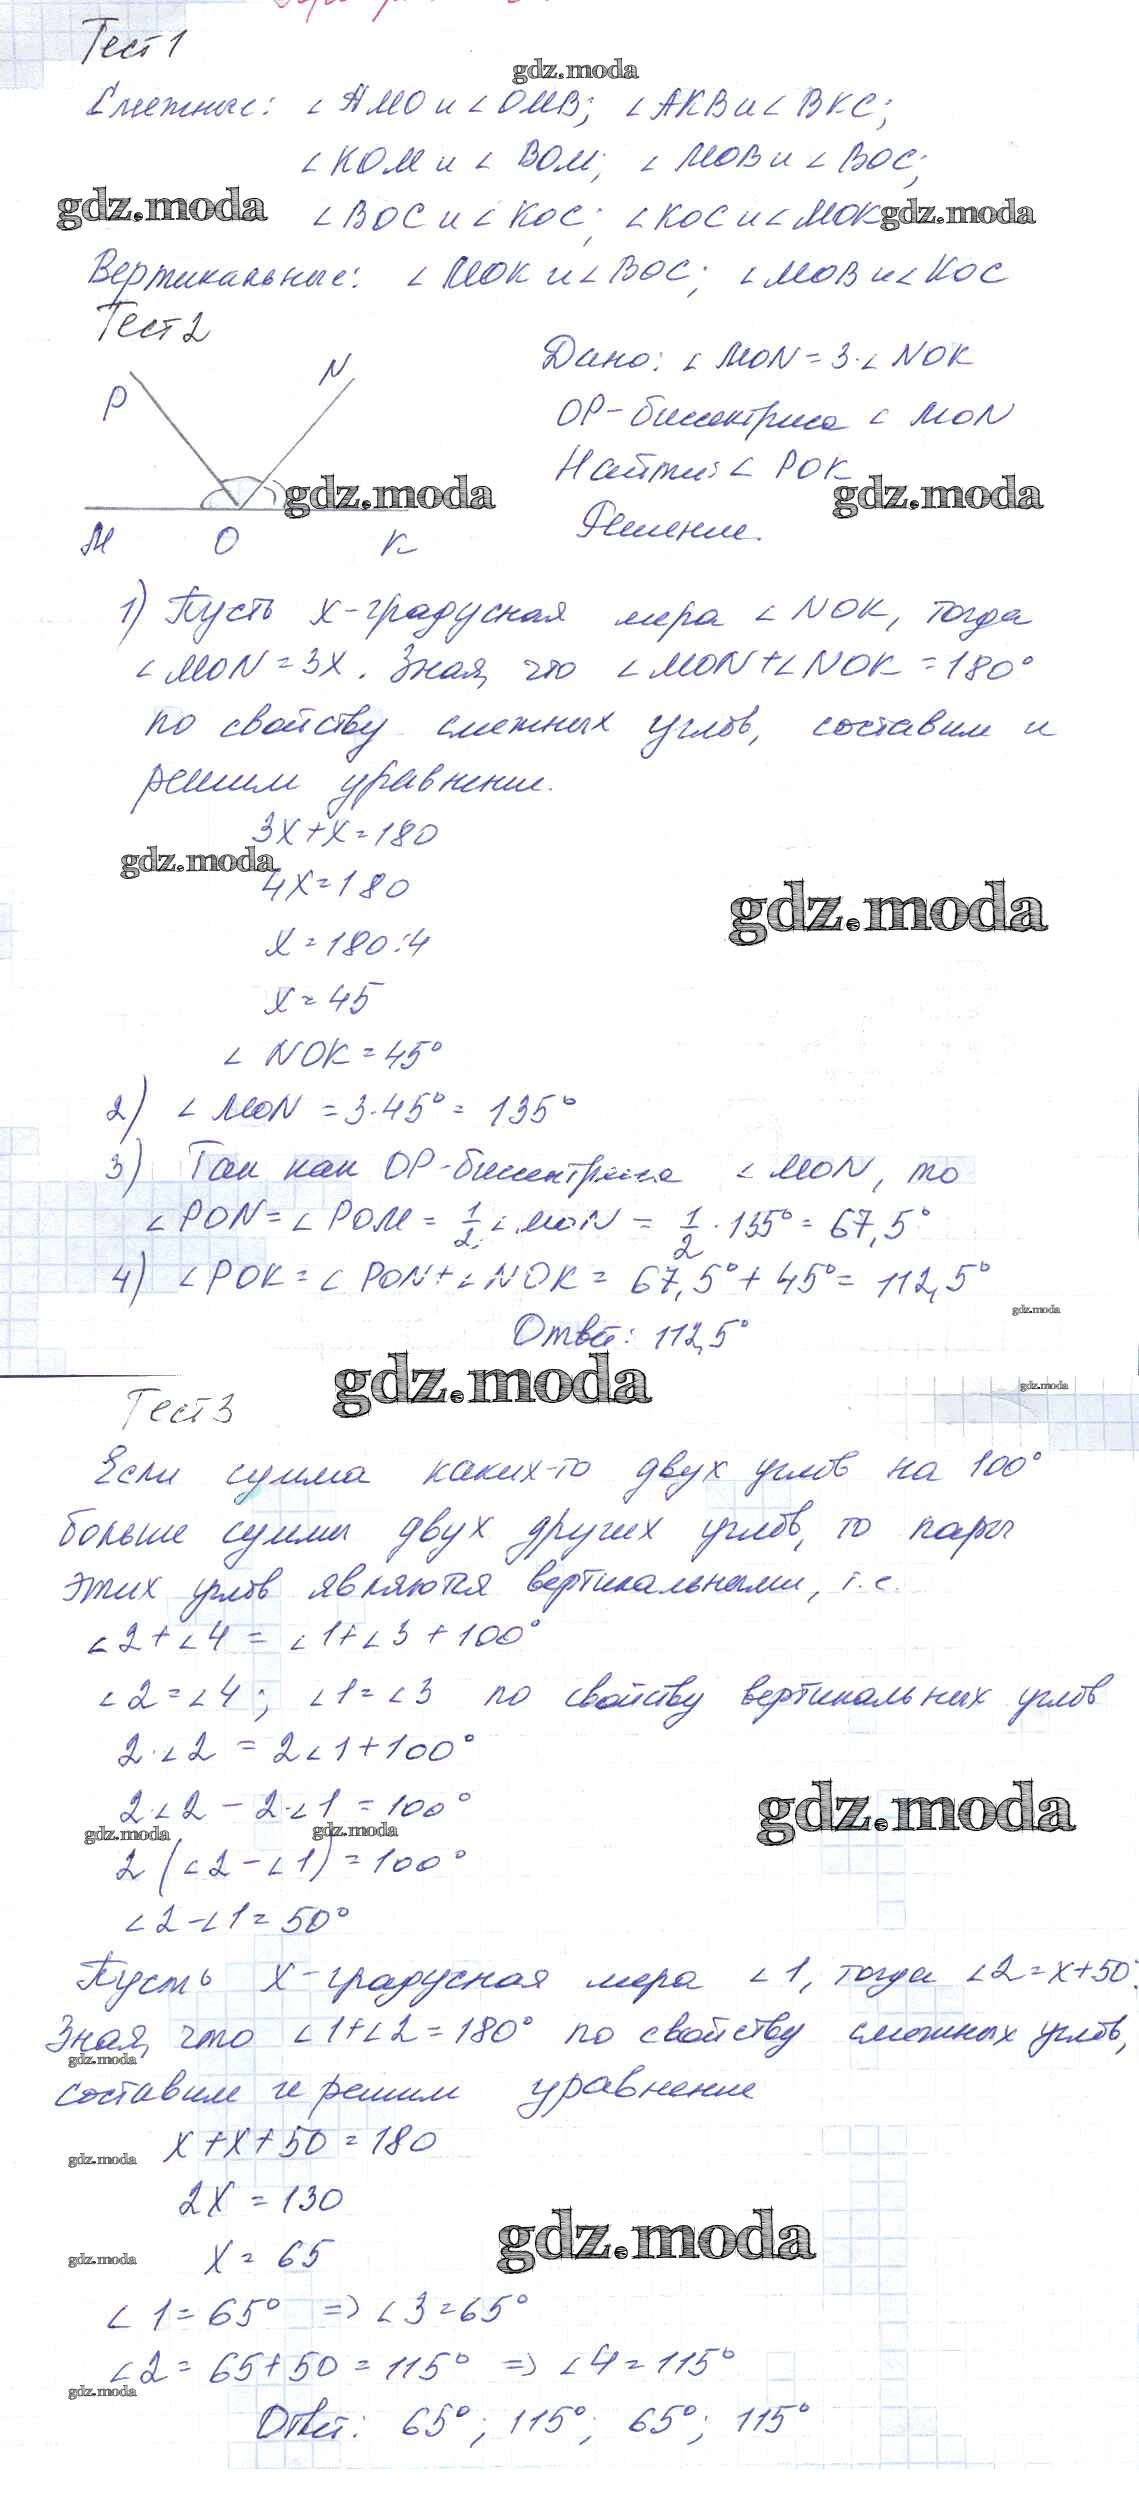 Тест 1
gdz.moda
Смежные: ∠AMO и ∠OMB; ∠AKB и ∠BKC;
∠KOM и ∠BOM; ∠MOB и ∠BOC;
gdz.moda
∠BOC и ∠KOC; ∠KOC и ∠MOK
gdz.moda
Вертикальные: ∠MOK и ∠BOC; ∠MOB и ∠KOC
Тест 2
P N
M O K
gdz.moda
Дано: ∠MON = 3·∠NOK
OP-биссектриса ∠MON
Найти: ∠POK
gdz.moda
Решение.
1) Пусть x-градусная мера ∠NOK, тогда
∠MON = 3x. Зная, что ∠MON + ∠NOK = 180°
по свойству смежных углов, составим и
решим уравнение.
3x + x = 180
gdz.moda
4x = 180
gdz.moda
x = 180:4
x = 45
∠NOK = 45°
2) ∠MON = 3·45° = 135°
3) Так как OP-биссектриса ∠MON, то
∠PON = ∠POM = 1/2 ∠MON = 1/2 · 135° = 67,5°
4) ∠POK = ∠PON + ∠NOK = 67,5° + 45° = 112,5°
gdz.moda
Ответ: 112,5°
gdz.moda
gdz.moda
Тест 3
Если сумма каких-то двух углов на 100°
больше суммы двух других углов, то пары
этих углов являются вертикальными, т.е.
∠2 + ∠4 = ∠1 + ∠3 + 100°
∠2 = ∠4; ∠1 = ∠3 по свойству вертикальных углов
2·∠2 = 2∠1 + 100°
2·∠2 - 2·∠1 = 100°
gdz.moda
gdz.moda gdz.moda
2(∠2 - ∠1) = 100°
∠2 - ∠1 = 50°
Пусть x-градусная мера ∠1, тогда ∠2 = x + 50°.
Зная, что ∠1 + ∠2 = 180° по свойству смежных углов,
gdz.moda
составим и решим уравнение
x + x + 50 = 180
gdz.moda
2x = 130
gdz.moda
x = 65
gdz.moda
∠1 = 65° => ∠3 = 65°
∠2 = 65 + 50 = 115° => ∠4 = 115°
gdz.moda
Ответ: 65°; 115°; 65°; 115°